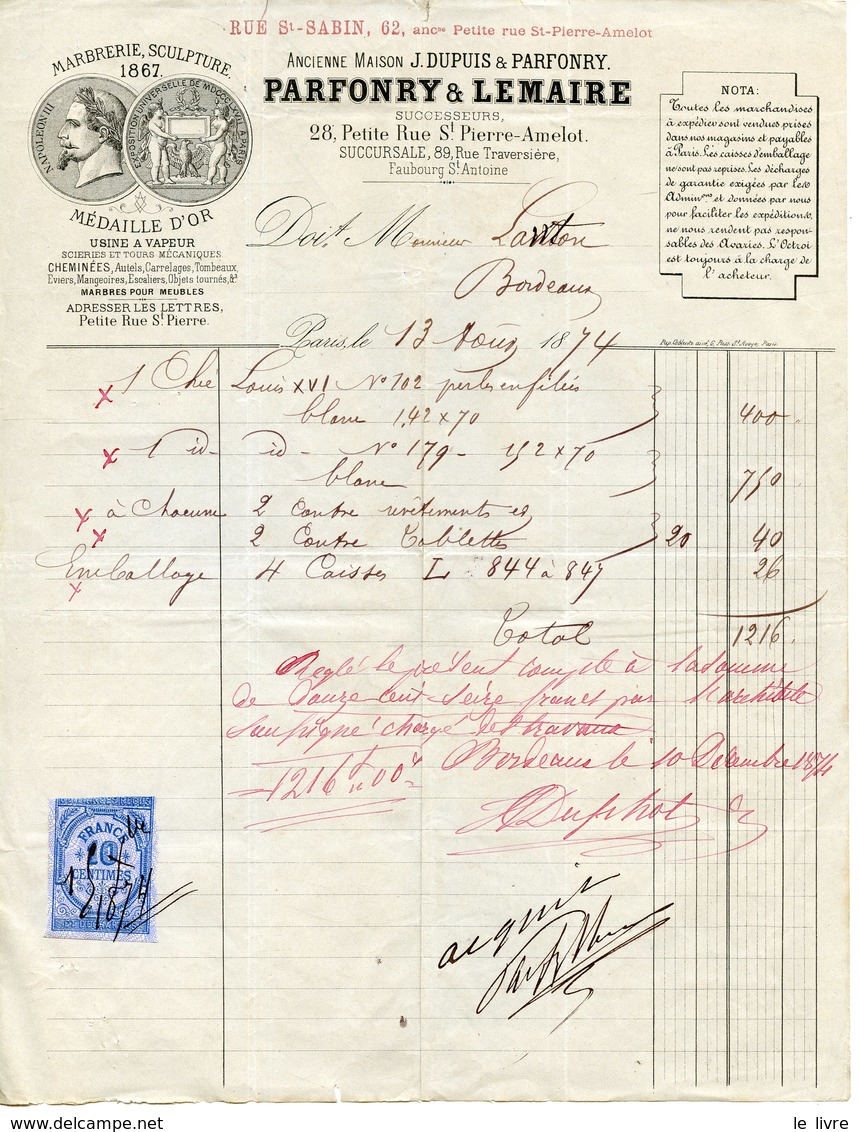 RUE St-SABIN, 62, ancne Petite rue St-Pierre-Amelot
MARBRERIE, SCULPTURE.
1867.
NAPOLEON III
EXPOSITION UNIVERSELLE DE MDCCCLXVII A PARIS
MÉDAILLE D'OR
USINE A VAPEUR
SCIERIES ET TOURS MÉCANIQUES
CHEMINÉES, Autels, Carrelages, Tombeaux,
Eviers, Mangeoires, Escaliers, Objets tournés, &a
MARBRES POUR MEUBLES
ADRESSER LES LETTRES,
Petite Rue St Pierre.
ANCIENNE MAISON J. DUPUIS & PARFONRY.
PARFONRY & LEMAIRE
SUCCESSEURS,
28, Petite Rue St Pierre-Amelot.
SUCCURSALE, 89, Rue Traversière,
Faubourg St Antoine
NOTA:
Toutes les marchandises
à expédier sont vendues prises
dans nos magasins et payables
à Paris. Les caisses d'emballage
ne sont pas reprises. Les décharges
de garantie exigées par les
Adminons et données par nous
pour faciliter les expéditions,
ne nous rendent pas respon-
sables des Avaries. L'Octroi
est toujours à la charge de
l'acheteur.
Doit Monsieur Lawton
Bordeaux
Paris, le 13 Août 1874
1 Chée Louis XVI No 102 perles enfilées
blanc 1,42 x 70 400
1 id - id - No 179 - 152 x 70
blanc 750
à Chacune 2 Contre revêtements et
2 Contre Tablettes 20 40
Emballage 4 Caisses L 844 à 847 26
Total 1216.
Réglé le présent compte à la somme
de Douze cent-seize francs par l'architecte
soussigné chargé des travaux
Bordeaux le 10 Décembre 1874
1216 f 00 c
Duphot
FRANCE
10
CENTIMES
1874
acquit
le livre